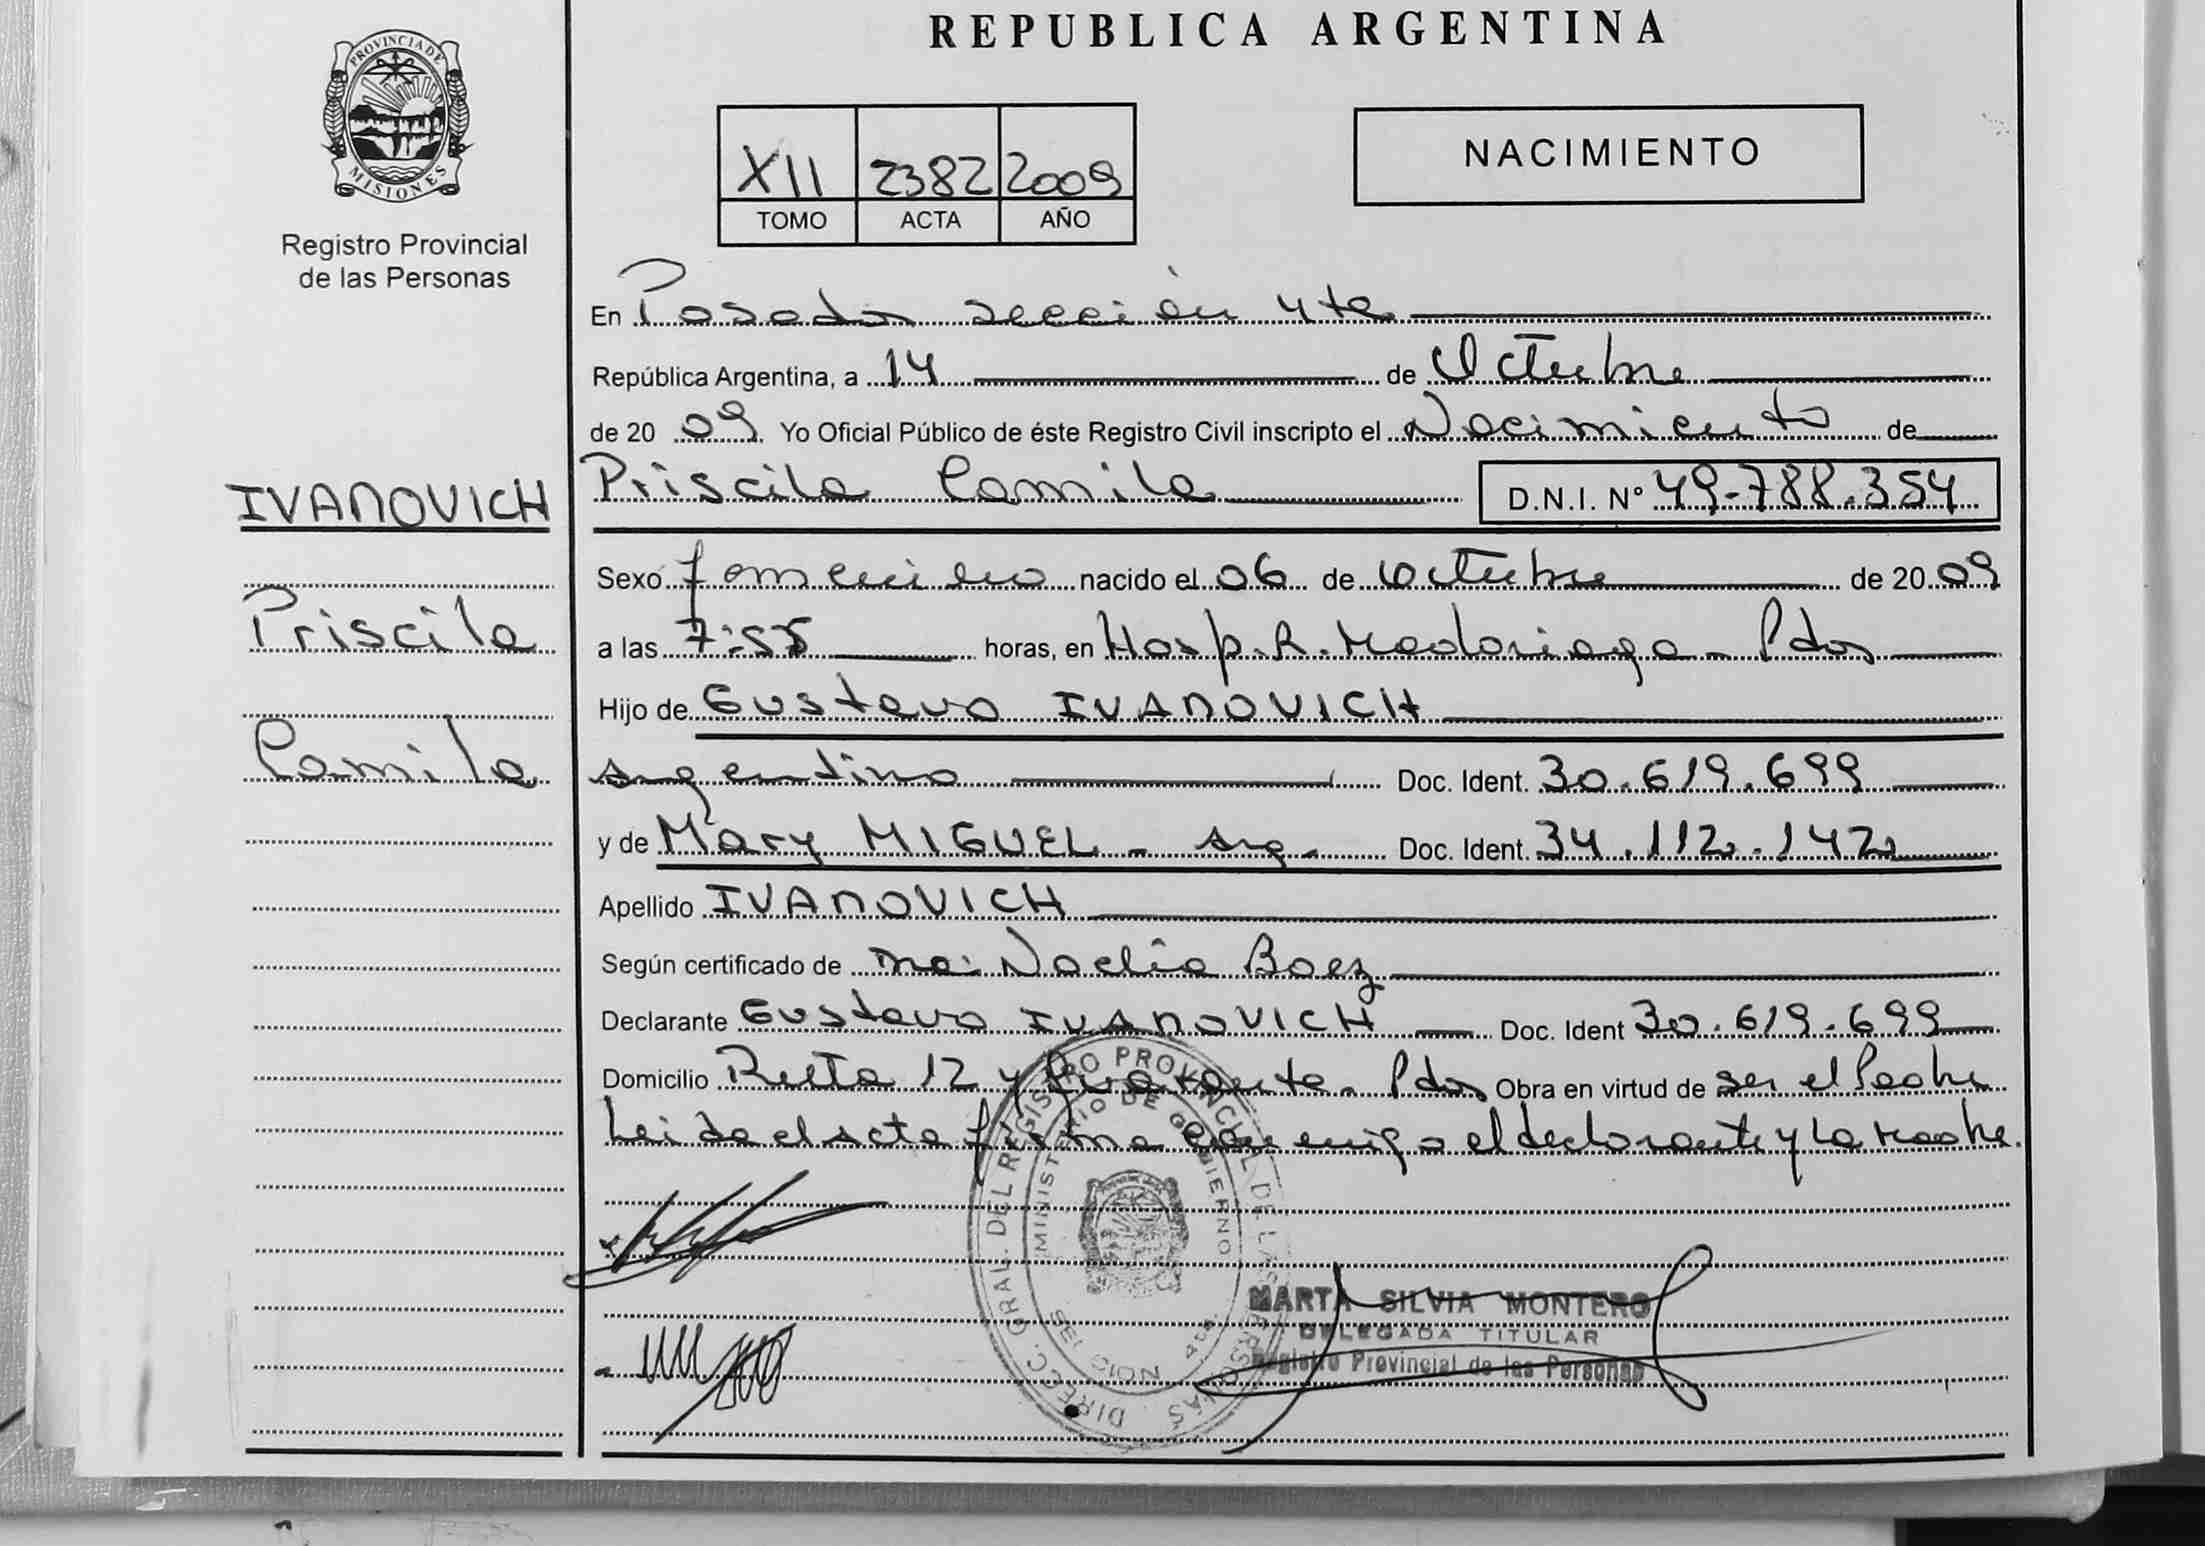 REPUBLICA ARGENTINA
PROVINCIA DE
MISIONES
Registro Provincial
de las Personas
XII 2382 2009
TOMO ACTA AÑO
NACIMIENTO
En Posadas sección 4ta
República Argentina, a 14 de Octubre
de 2009 Yo Oficial Público de éste Registro Civil inscripto el Nacimiento de
IVANOVICH
Priscila
Camila
Priscila Camila D.N.I. Nº 49.788.354
Sexo femenino nacido el 06 de Octubre de 2009
a las 7:55 horas, en Hosp. R. Madariaga - Pdas
Hijo de Gustavo IVANOVICH
argentino Doc. Ident. 30.619.699
y de Mary MIGUEL - arg. Doc. Ident. 34.112.142
Apellido IVANOVICH
Según certificado de Noelia Baez
Declarante Gustavo IVANOVICH Doc. Ident 30.619.699
Domicilio Ruta 12 y - Pdas Obra en virtud de ser el Padre
Leida el acta firma conmigo el declarante y La Madre.
DIRECC. GRAL. DEL REGISTRO PROVINCIAL DE LAS PERSONAS
MINISTERIO DE GOBIERNO
SECCION 4ta.
MARTA SILVIA MONTERO
DELEGADA TITULAR
Registro Provincial de las Personas